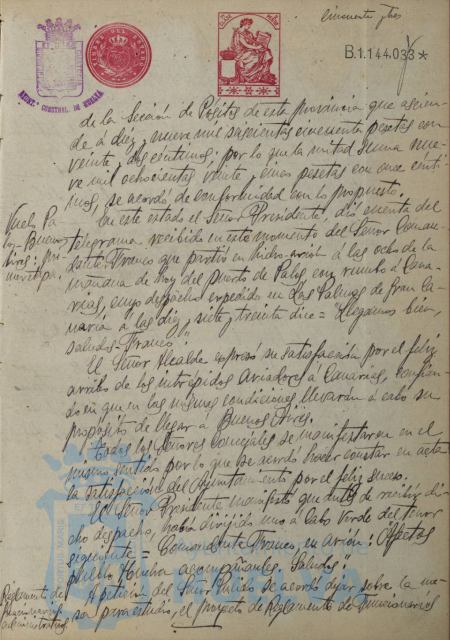 cincuenta y tres
B.1.144.033*
AYUNT. CONSTNAL DE HUELVA
de la Sección de Pósitos de esta provincia que ascien-
de á diez y nueve mil seiscientas cincuenta pesetas con
veinte y dos céntimos; por lo que la mitad suma nue-
ve mil ochocientas veinte y cinco pesetas con once cénti-
mos, se acordó de conformidad con lo propuesto.
Vuelo Pa
los-Buenos
Aires:
En este estado el Señor Presidente, dió cuenta del
telegrama recibido en este momento del Señor Coman-
dante Franco que partió en hidro-avión á las ocho de la
mañana de hoy del puerto de Palos con rumbo á Cana-
rias, cuyo despacho expedido en Las Palmas de Gran Ca-
naria á las diez y siete y treinta dice = Llegamos bien,
saludos-Franco".
El Señor Alcalde expresó su satisfacción por el feliz
arribo de los intrépidos Aviadores á Canarias, confian-
do en que en las mismas condiciones llevarán á cabo su
propósito de llegar a Buenos Aires.
Todos los Señores Concejales se manifestaron en el
mismo sentido por lo que se acordó hacer constar en acta
la satisfacción del Ayuntamiento por el feliz suceso.
El Señor Presidente manifestó que antes de recibir di-
cho despacho, había dirigido uno á Cabo Verde del tenor
siguiente = Comandante Franco en avión: Afectos
pueblo Huelva acompáñanles. Saludos."
Reglamento de
funcionarios
administrativos
A petición del Señor Pulido se acordó dejar sobre la me-
sa para estudio, el proyecto de Reglamento de Funcionarios